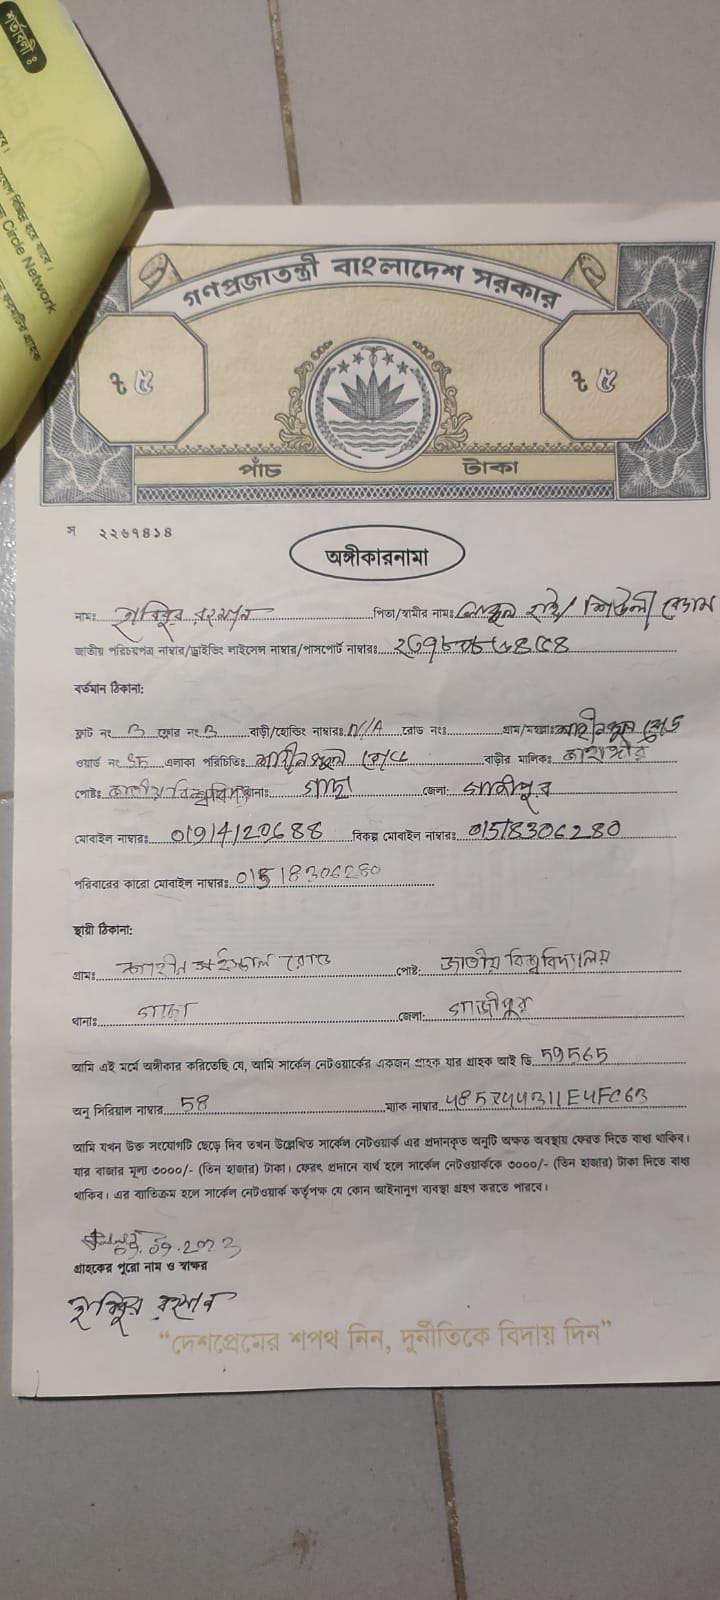 শর্তাবলী ঃ
Circle Network
গণপ্রজাতন্ত্রী বাংলাদেশ সরকার
৳ ৫
৳ ৫
পাঁচ টাকা
স ২২৬৭৪১৪
অঙ্গীকারনামা
নামঃ হাবিবুর রহমান পিতা/স্বামীর নামঃ হাই/ শিউলী বেগম
জাতীয় পরিচয়পত্র নাম্বার/ড্রাইভিং লাইসেন্স নাম্বার/পাসপোর্ট নাম্বারঃ
বর্তমান ঠিকানা:
ফ্লাট নং B ফ্লোর নং 3 বাড়ী/হোল্ডিং নাম্বারঃ N/A রোড নংঃ গ্রাম/মহল্লাঃ রোড
ওয়ার্ড নং এলাকা পরিচিতিঃ রোড বাড়ীর মালিকঃ জাহাঙ্গীর
পোষ্টঃ জাতীয় বিশ্ববিদ্যা থানাঃ গাছা জেলা: গাজীপুর
মোবাইল নাম্বারঃ 01914120688 বিকল্প মোবাইল নাম্বারঃ 01518306280
পরিবারের কারো মোবাইল নাম্বারঃ 01518306280
স্থায়ী ঠিকানা:
গ্রামঃ রোড পোষ্ট: জাতীয় বিশ্ববিদ্যালয়
থানাঃ গাছা জেলা: গাজীপুর
আমি এই মর্মে অঙ্গীকার করিতেছি যে, আমি সার্কেল নেটওয়ার্কের একজন গ্রাহক যার গ্রাহক আই ডি 59565
অনু সিরিয়াল নাম্বার 58 ম্যাক নাম্বার
আমি যখন উক্ত সংযোগটি ছেড়ে দিব তখন উল্লেখিত সার্কেল নেটওয়ার্ক এর প্রদানকৃত অনুটি অক্ষত অবস্থায় ফেরত দিতে বাধ্য থাকিব।
যার বাজার মূল্য ৩০০০/- (তিন হাজার) টাকা। ফেরৎ প্রদানে ব্যর্থ হলে সার্কেল নেটওয়ার্ককে ৩০০০/- (তিন হাজার) টাকা দিতে বাধ্য
থাকিব। এর ব্যতিক্রম হলে সার্কেল নেটওয়ার্ক কর্তৃপক্ষ যে কোন আইনানুগ ব্যবস্থা গ্রহণ করতে পারবে।
09.2023
গ্রাহকের পুরো নাম ও স্বাক্ষর
হাবিবুর রহমান
“দেশপ্রেমের শপথ নিন, দুর্নীতিকে বিদায় দিন”